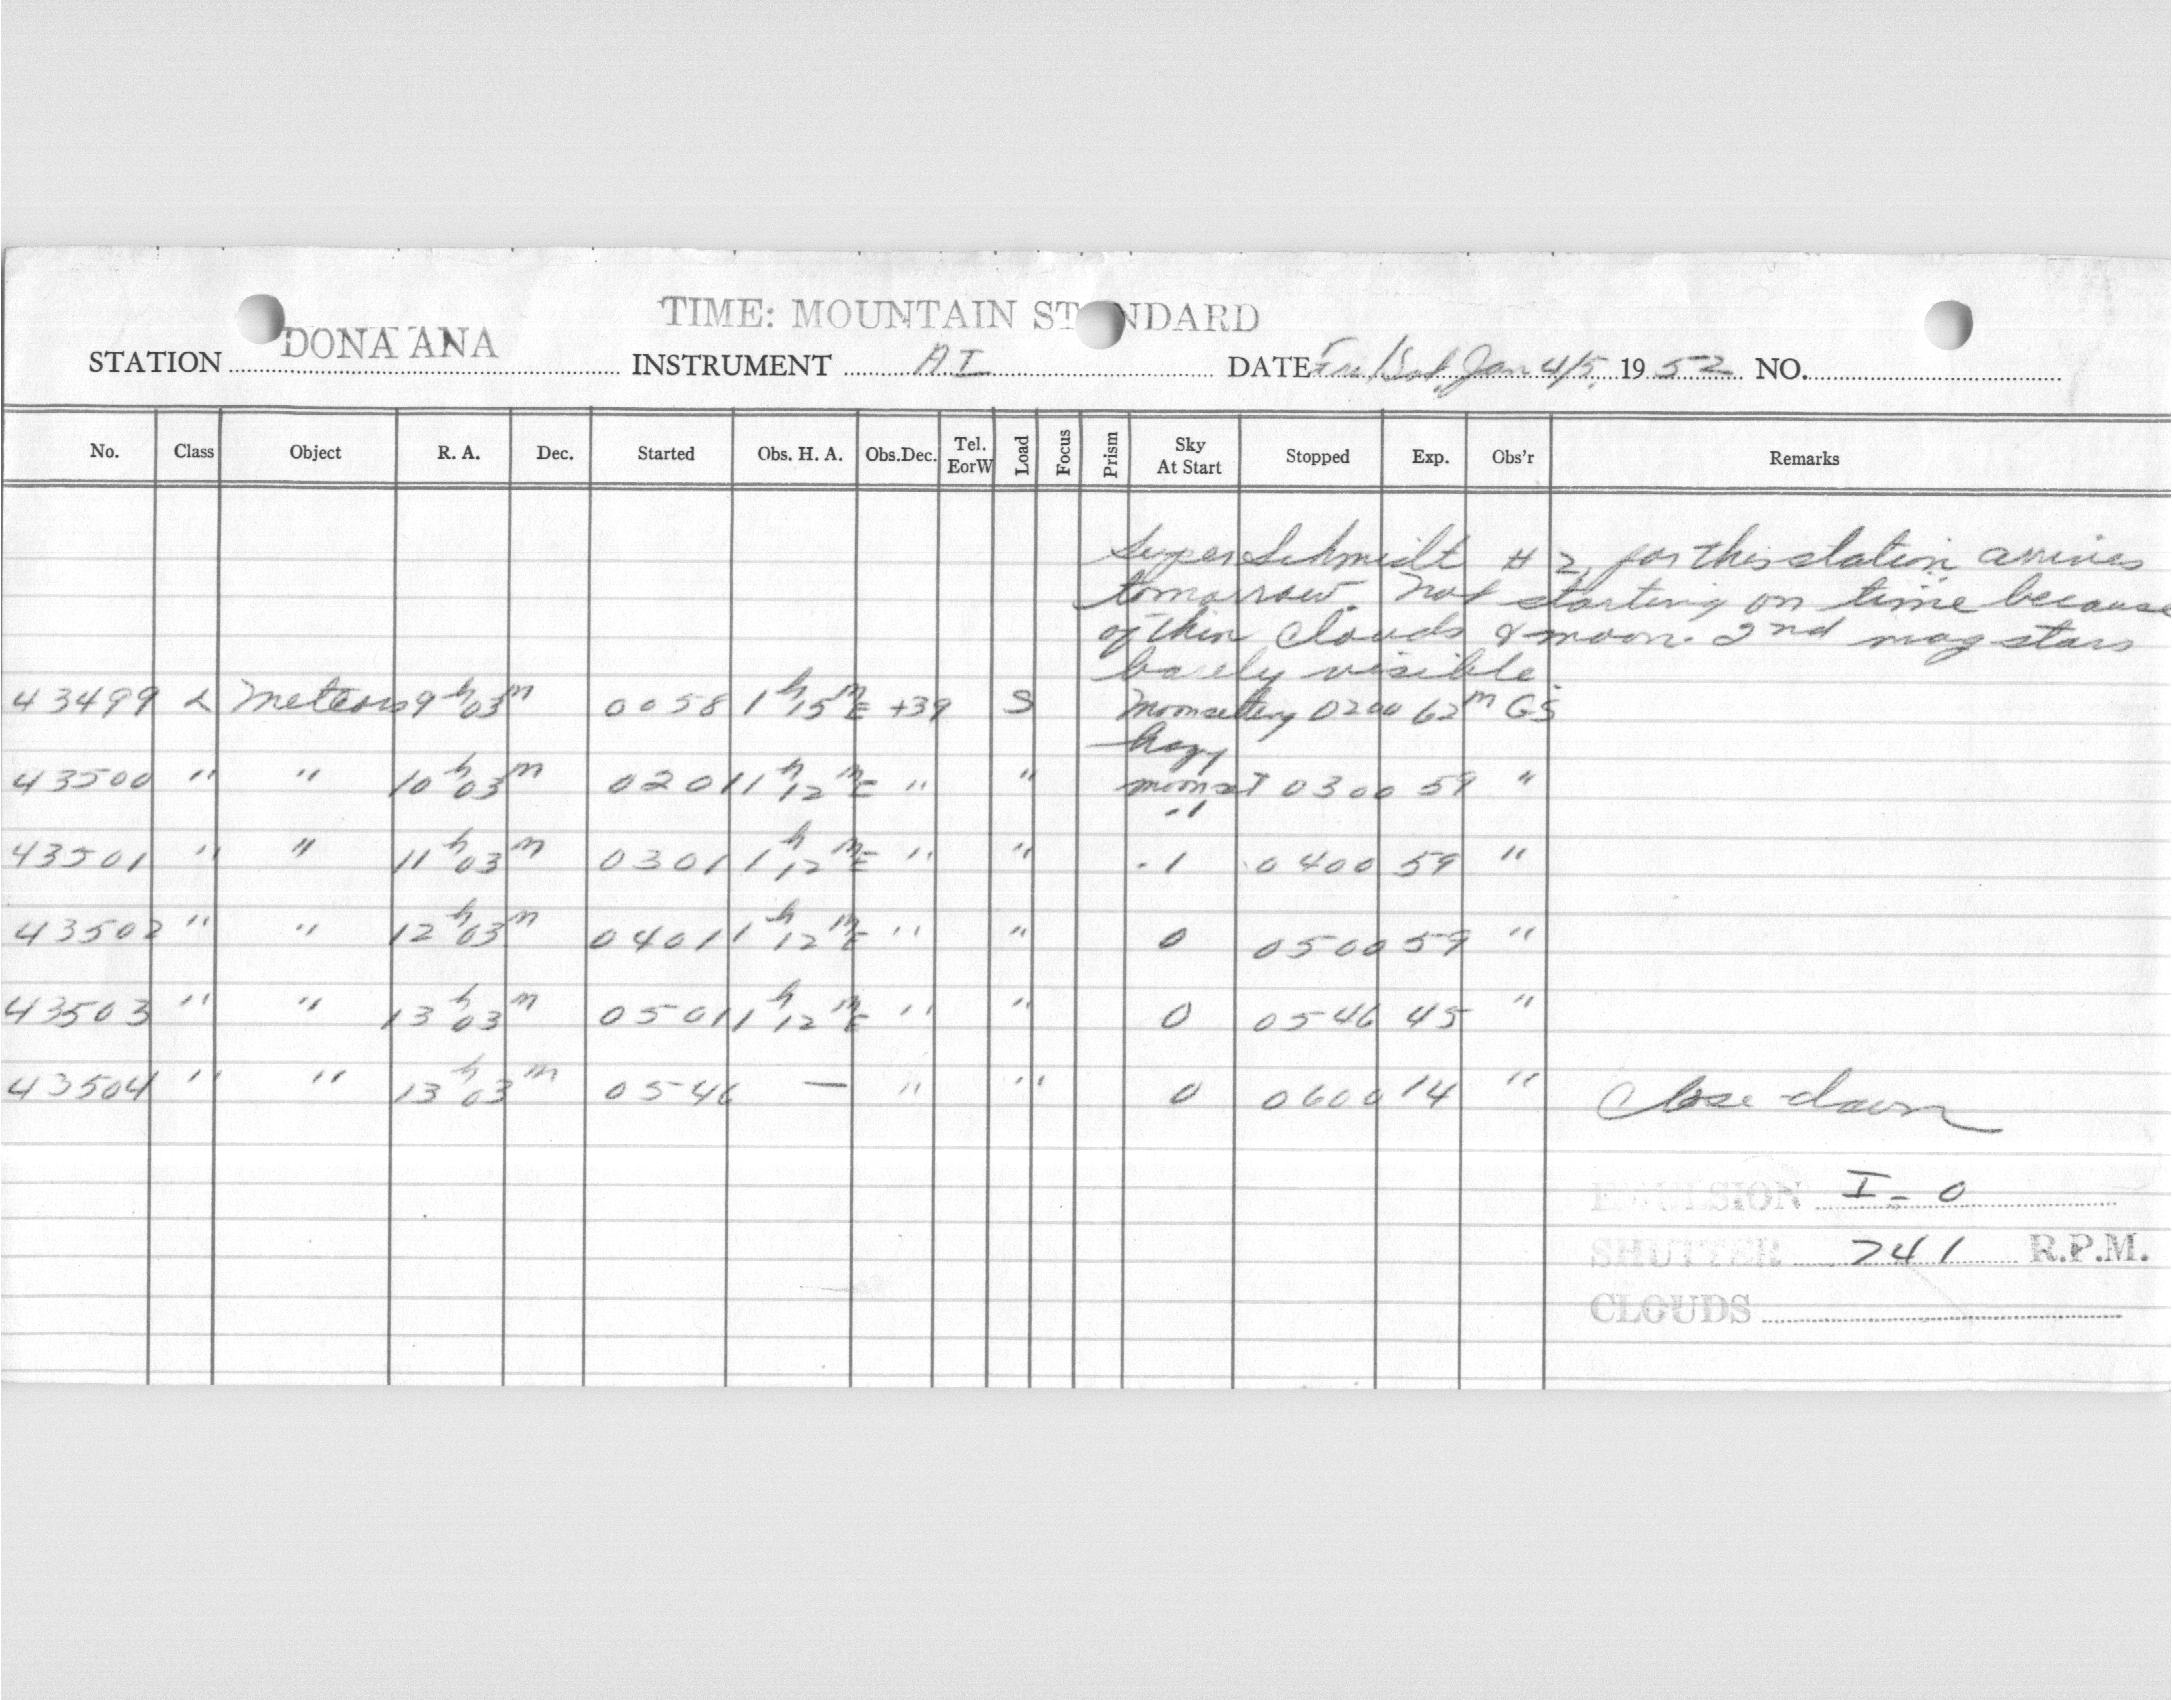 TIME: MOUNTAIN STANDARD
STATION DONA ANA INSTRUMENT AI DATE Fri/Sat, Jan 4/5, 1952 NO.
No. Class Object R. A. Dec. Started Obs. H. A. Obs.Dec. Tel. EorW Load Focus Prism Sky At Start Stopped Exp. Obs'r Remarks
Super Schmidt # 2 for this station arrives
tomorrow. Not starting on time because
of thin clouds & moon. 2nd mag stars
barely visible.
43499 L Meteors 9h 03m 0058 1h 15m E +39 S Moonsetting 0200 62m GS
hazy
43500 " " 10h 03m 0201 1h 12m E " " moonset 0300 59 "
-1
43501 " " 11h 03m 0301 1h 12m E " " -1 0400 59 "
43502 " " 12h 03m 0401 1h 12m E " " 0 0500 59 "
43503 " " 13h 03m 0501 1h 12m E " " 0 0546 45 "
43504 " " 13h 03m 0546 — " " 0 0600 14 " Close-dawn
EMULSION I-0
SHUTTER 741 R.P.M.
CLOUDS